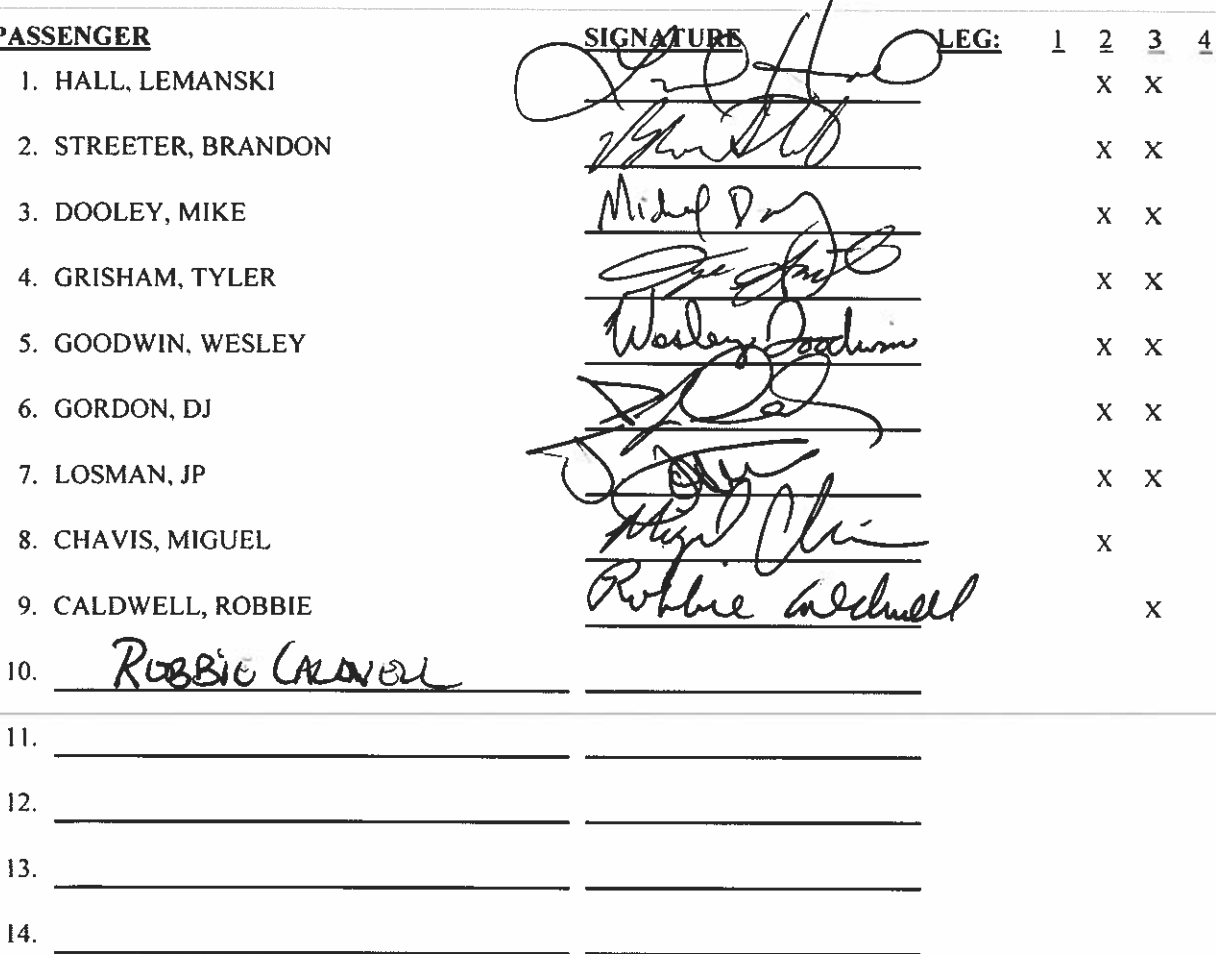 PASSENGER SIGNATURE LEG: 1 2 3 4
1. HALL, LEMANSKI X X
2. STREETER, BRANDON X X
3. DOOLEY, MIKE Michael X X
4. GRISHAM, TYLER X X
5. GOODWIN, WESLEY Wesley Goodwin X X
6. GORDON, DJ X X
7. LOSMAN, JP X X
8. CHAVIS, MIGUEL Miguel X
9. CALDWELL, ROBBIE Robbie Caldwell X
10. ROBBIE CALDWELL
11.
12.
13.
14.